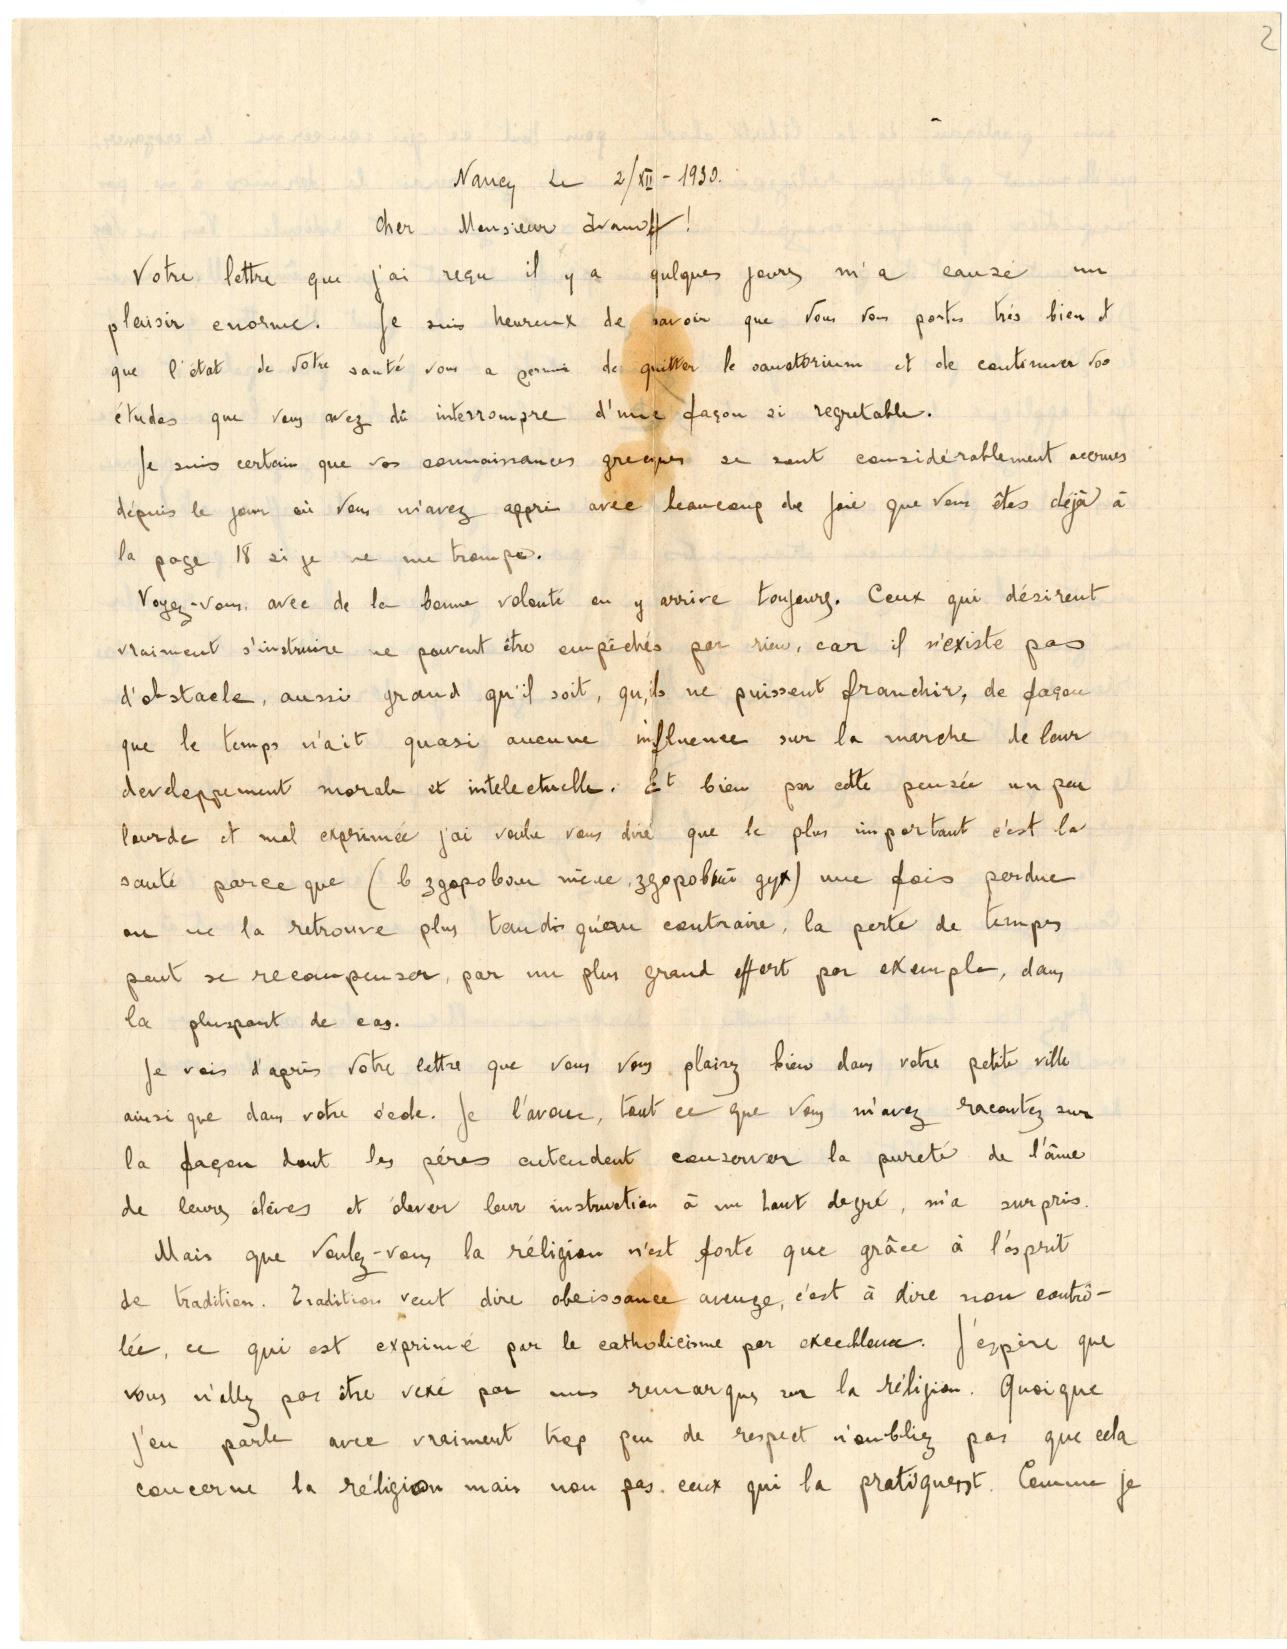 2
Nancy Le 2/XII - 1930.
Cher Monsieur Ivanoff !
Votre lettre que j'ai reçu il y a qulques jours m'a causé un
plaisir enorme. Je suis heureux de savoir que Vous Vous portes très bien et
que l'état de Votre santé vous a permi de quitter le sanatorium et de continuer vos
études que vous avez dû interrompre d'une façon si regretable.
Je suis certain que vos connaissances greques se sont considérablement accrues
dépuis le jour où Vous m'avez appri avec beaucoup de joie que Vous êtes déjà à
la page 18 si je ne me trompe.
Voyez-vous, avec de la bonne volonté on y arrive toujours. Ceux qui désirent
vraiment s'instruire ne peuvent être empêchés par rien, car il n'existe pas
d'obstacle, aussi grand qu'il soit, qu'ils ne puissent franchir, de façon
que le temps n'ait quasi aucune influence sur la marche de leur
developpement morale et intelectuelle. Et bien par cette pensée un peu
lourde et mal exprimée j'ai voulu vous diré que le plus important c'est la
santé parce que (в здоровом теле, здоровый дух) une fois perdue
on ne la retrouve plus tandis qu'au contraire, la perte de temps
peut se recompenser, par un plus grand effort par exemple, dans
la pluspart de cas.
Je vois d'après Votre lettre que vous vous plaisez bien dans votre petite ville
ainsi que dans votre école. Je l'avoue, tout ce que Vous m'avez racontez sur
la façon dont les péres entendent conserver la pureté de l'âme
de leurs élèves et élever leur instruction à un haut degré, m'a surpris.
Mais que Voulez-vous la réligion n'est forte que grâce à l'ésprit
de tradition. Tradition veut dire obeissance aveuge, c'est à dire non contrô-
lée, ce qui est exprimé par le catholicisme par excellence. J'éspère que
vous n'allez pas être vexé par mes remarques sur la réligion. Quoique
j'en parle avec vraiment trop peu de respect n'oubliez pas que cela
concerne la réligion mais non pas ceux qui la pratiquent. Comme je